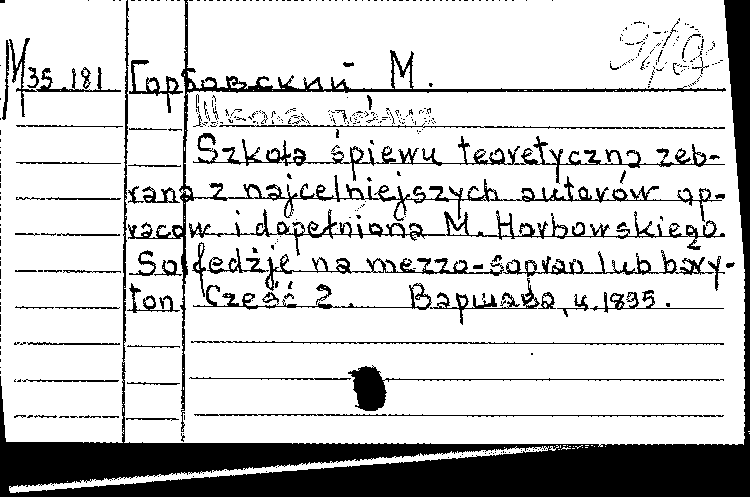 М 35.181 Горбовский М.
Школа пения
Szkoła śpiewu teoretyczna zeb-
rana z najcelniejszych autorów op-
racow. i dopełniona M. Horbowskiego.
Solfedżje na mezzo-sopran lub bary-
ton. Cześć 2. Варшава, ц. 1895.